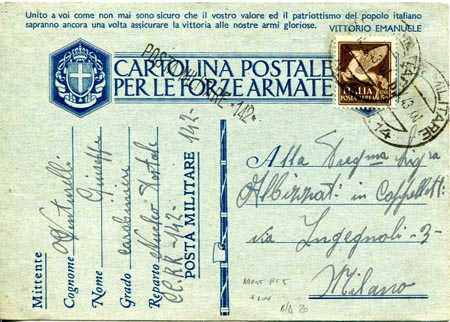 Unito a voi come non mai sono sicuro che il vostro valore ed il patriottismo del popolo italiano
sapranno ancora una volta assicurare la vittoria alle nostre armi gloriose.
VITTORIO EMANUELE
CARTOLINA POSTALE
PER LE FORZE ARMATE
ITALIA
POSTA AEREA
MILITARE
142
Mittente
Cognome Venturelli
Nome Giuseppe
Grado carabiniere
Reparto Nucleo Postale
CC.RR. -142-
POSTA MILITARE 142-
Alla Preg.ma Sig.ra
Albizzati in Cappelletti
via Ingegnoli -3-
Milano